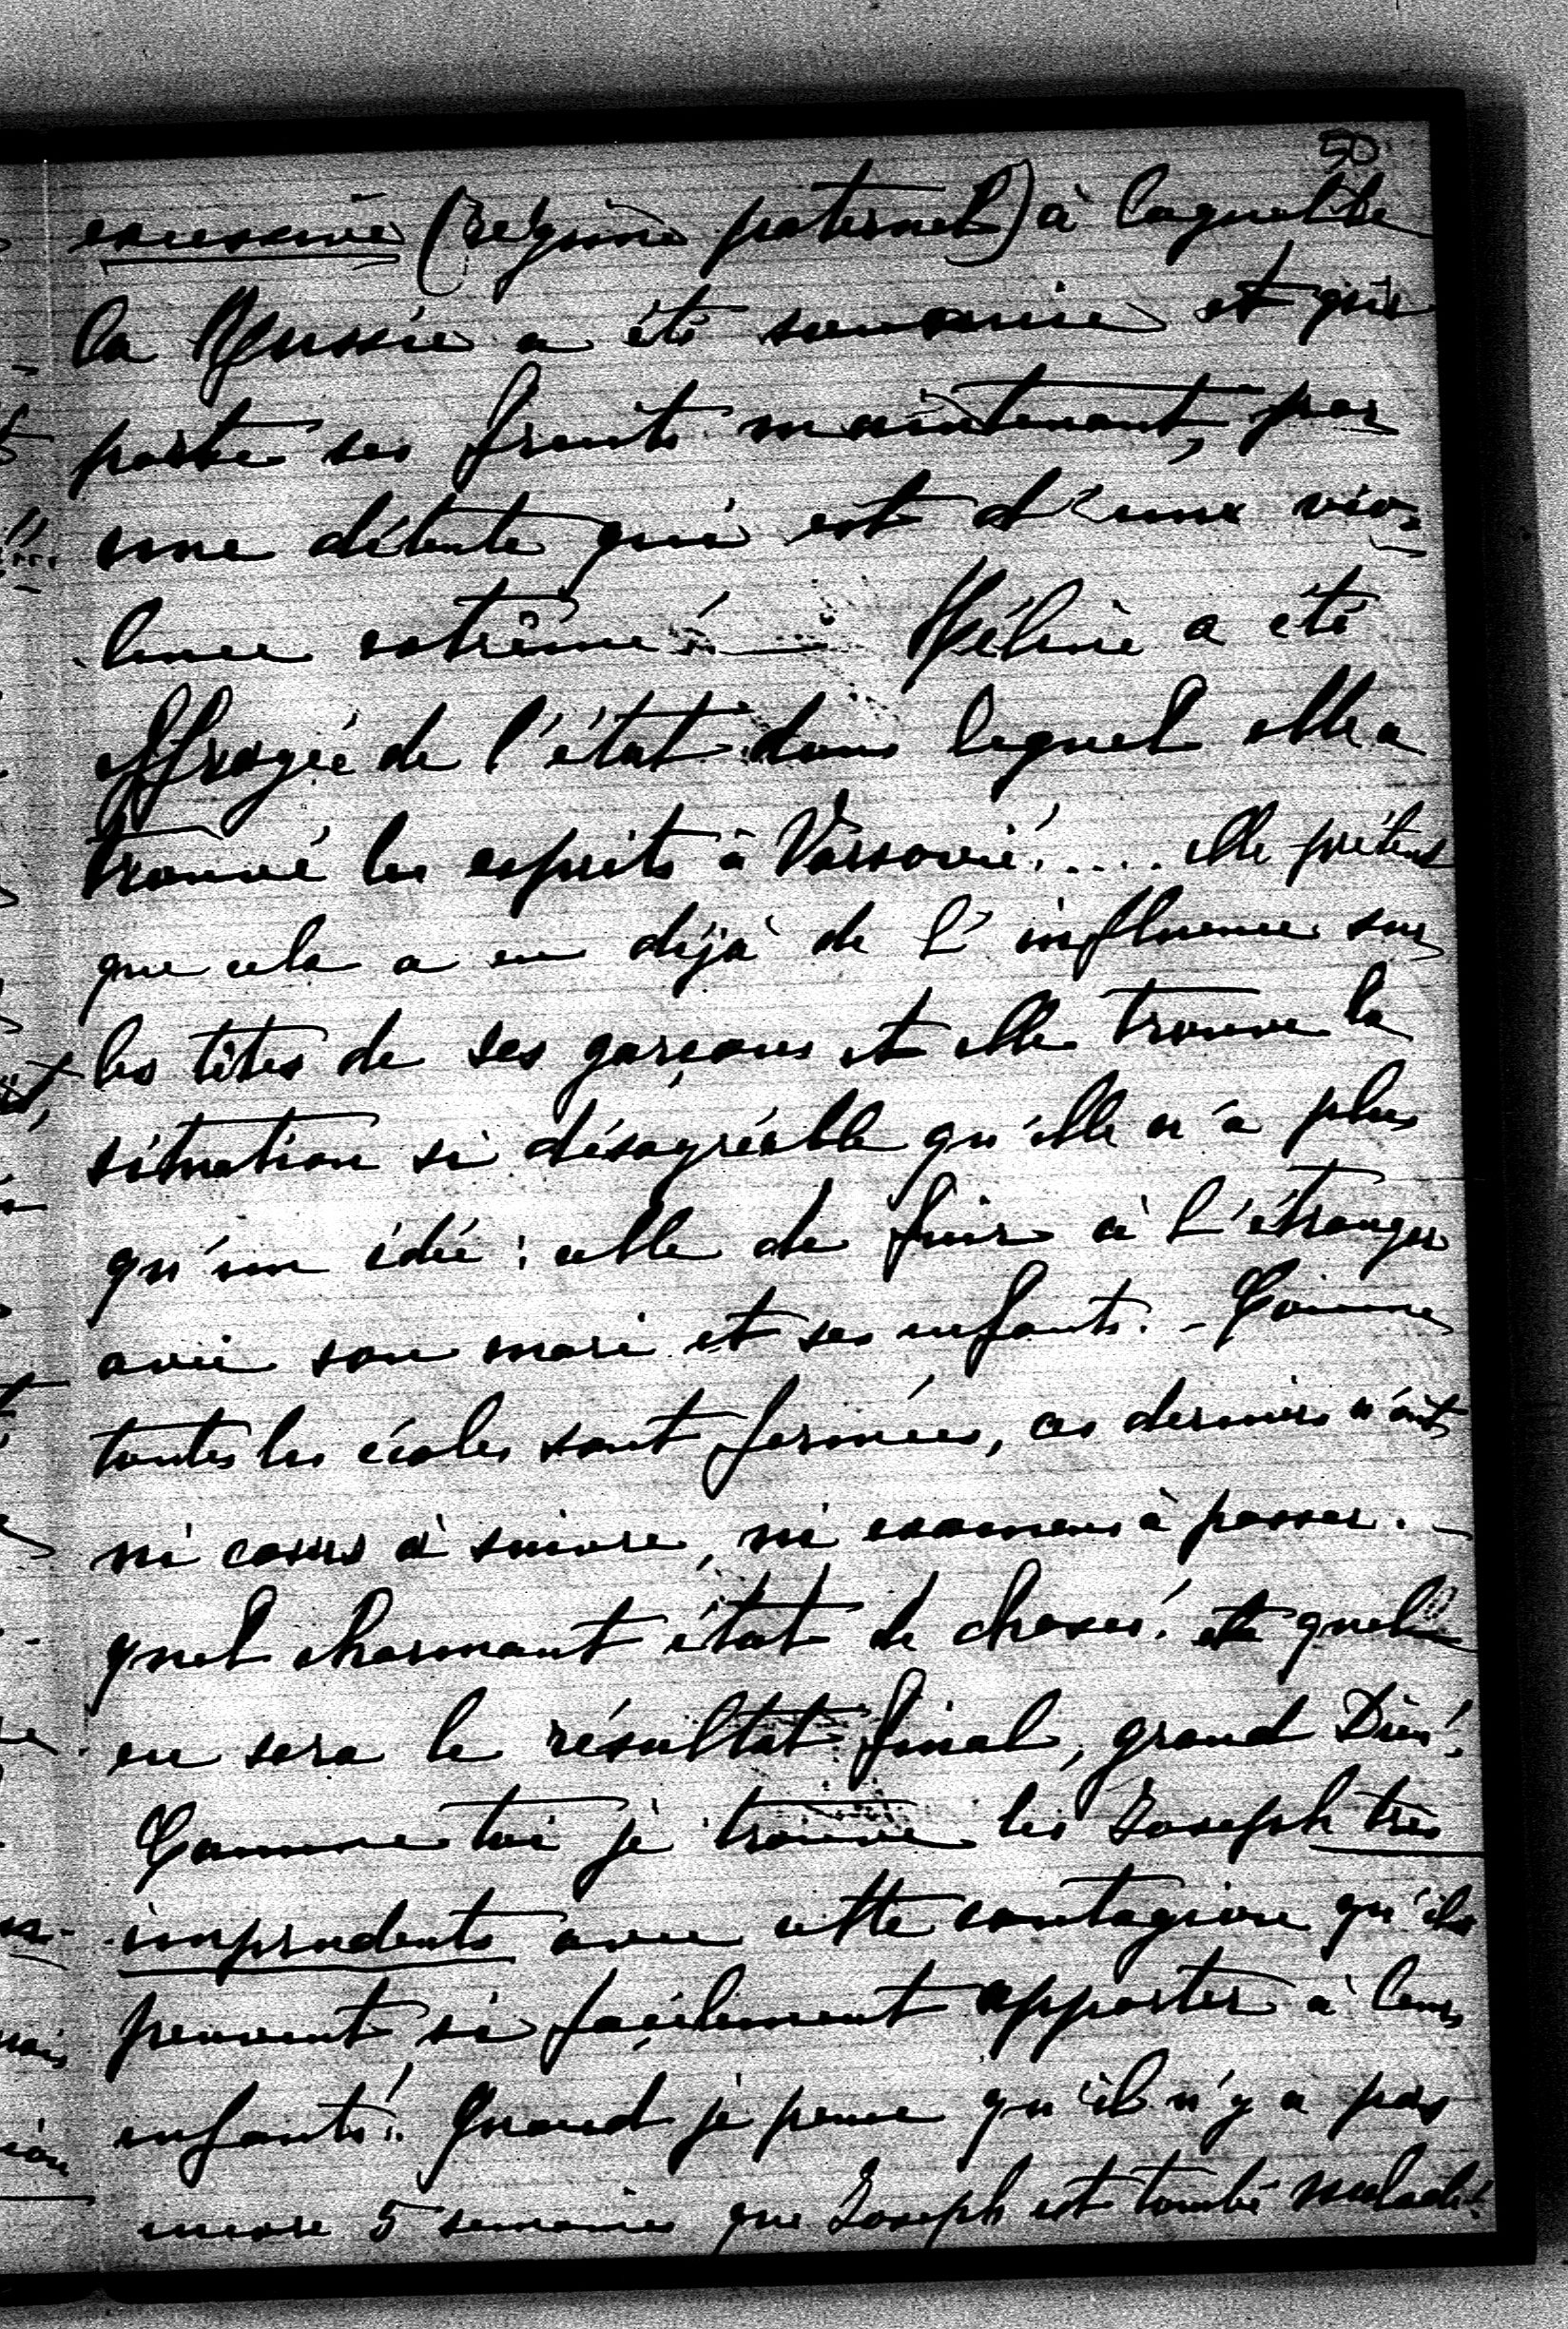 50
excessive (régime paternel) à laquelle
la Russie a été soumise et qui
porte ses fruits maintenant, par
une détente qui est d'une vio-
lence extrême! — Hélène a été
effrayée de l'état dans lequel elle a
trouvé les esprits à Varsovie!.... elle prétend
que cela a eu déjà de l'influence sur
les têtes de ses garçons et elle trouve la
situation si désagréable qu'elle n'a plus
qu'une idée : celle de fuir à l'étranger
avec son mari et ses enfants. - Comme
toutes les écoles sont fermées, ces derniers n'ont
ni cours à suivre, ni examens à passer. -
quel charmant état de choses! et quel
en sera le résultat final, grand Dieu!
Comme toi je trouve les Joseph très
imprudents avec cette contagion qu'ils
peuvent si facilement apporter à leurs
enfants!. Quand je pense qu'il n'y a pas
encore 5 semaines que Joseph est tombé malade!